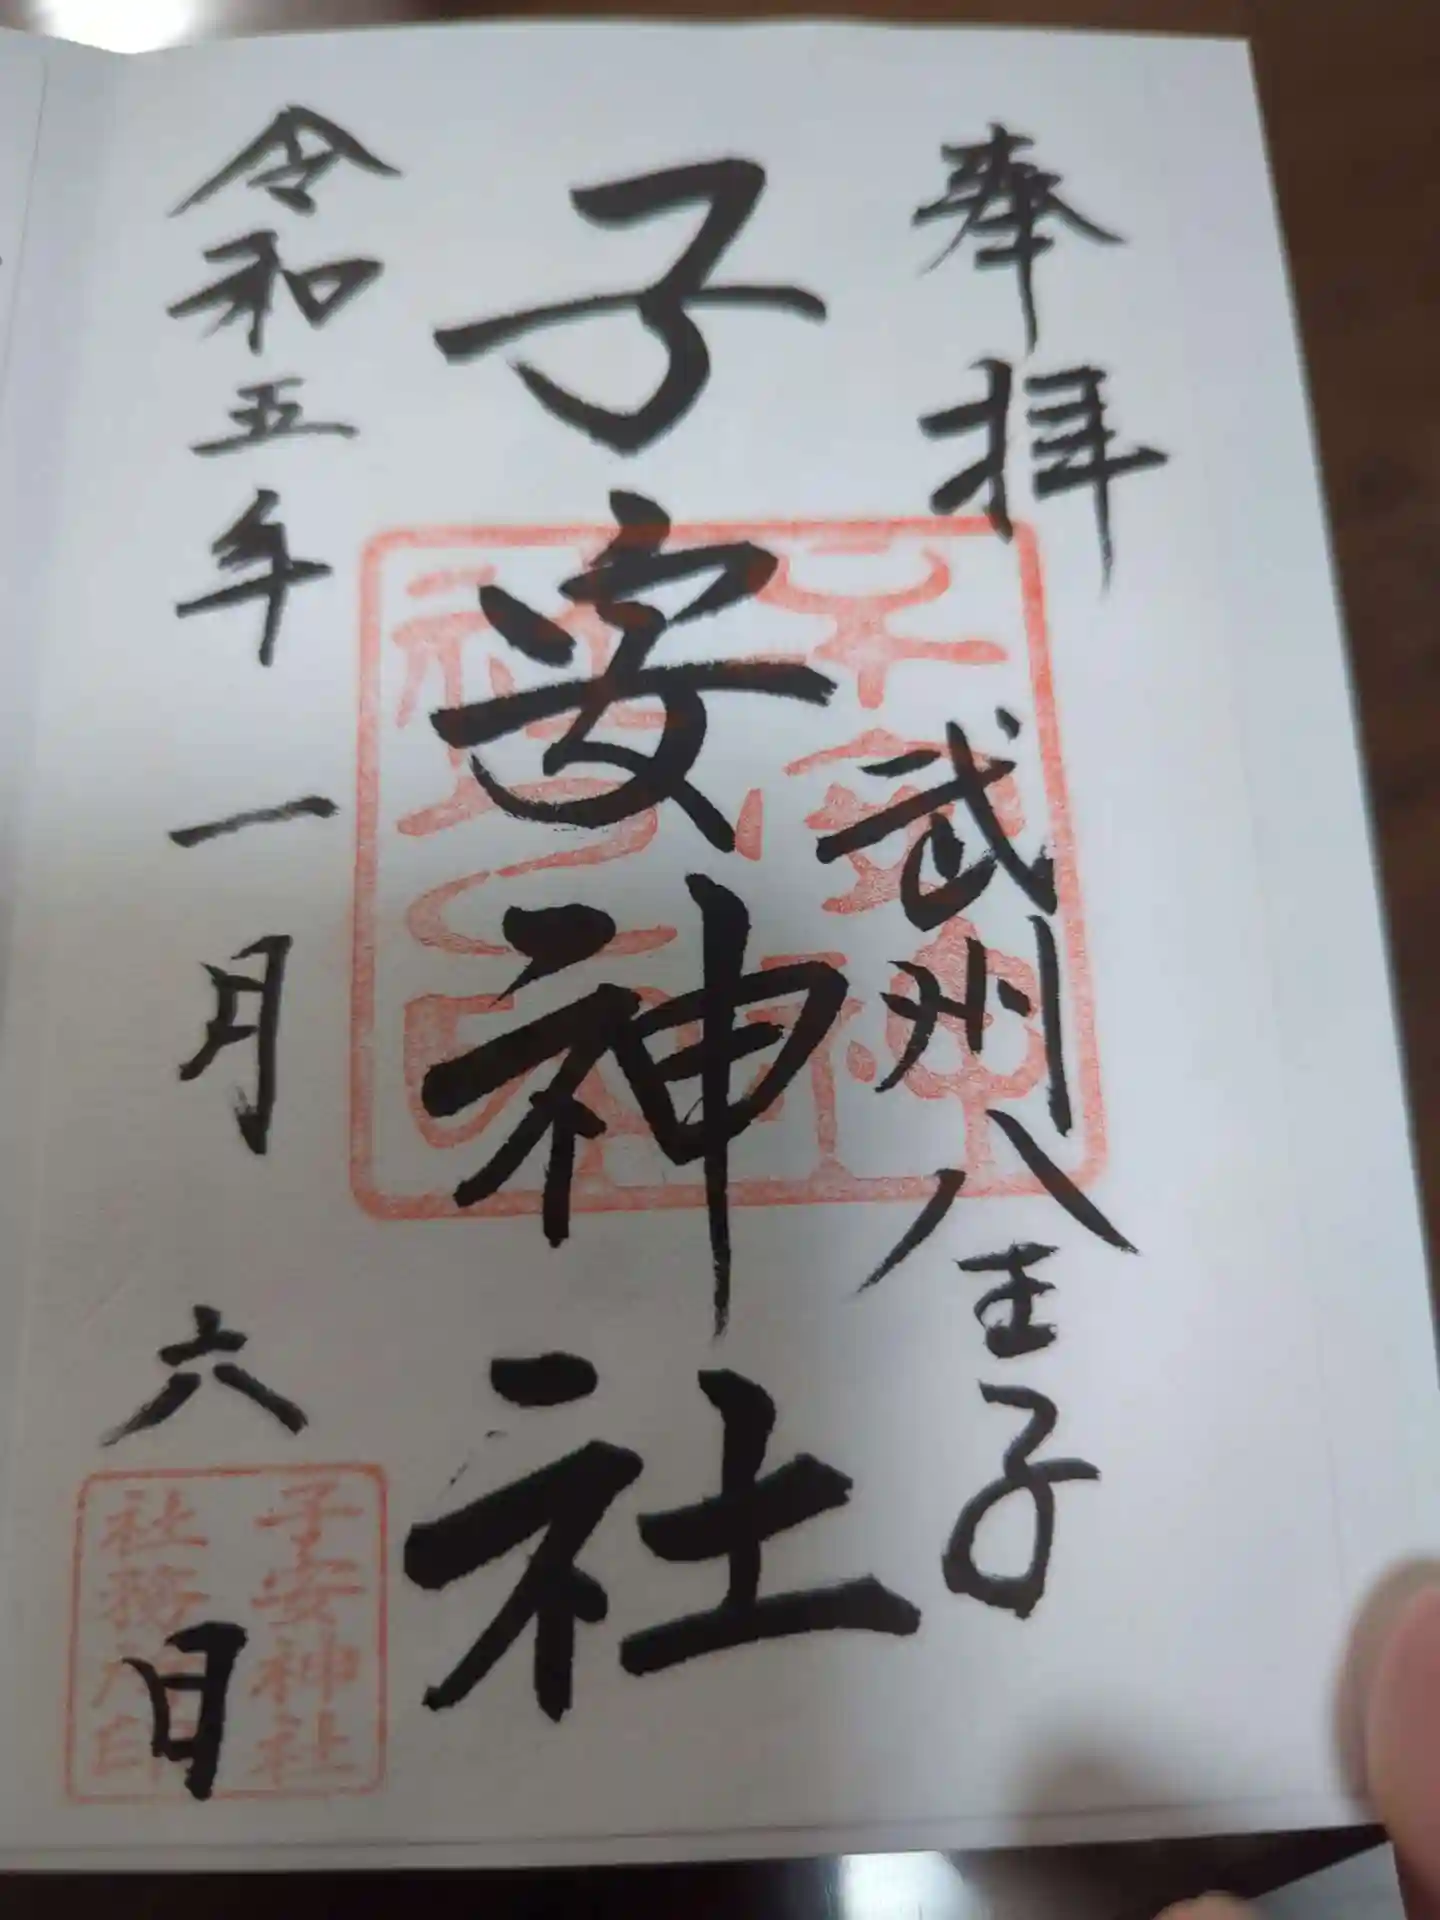 奉拝
武州八王子
子安神社
令和五年一月六日
子安神
社之印
子安神社
社務所印